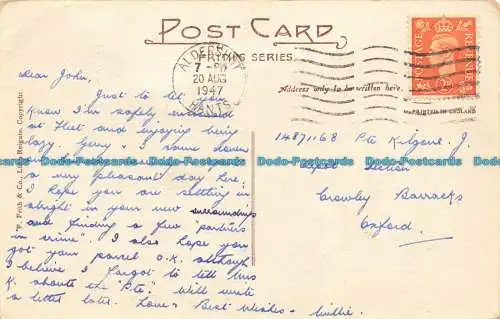 POST CARD
FRITH'S SERIES.
ALDERSHOT
7 - PM
20 AUG
1947
HANTS
POSTAGE
REVENUE
Address only to be written here.
PRINTED IN ENGLAND
F. Frith & Co., Ltd., Reigate, Copyright.
Dear John,
Just to let you
know I'm safely
at Fleet and enjoying being
lazy. Gerry
a very pleasant day here.
I hope you are settling in
alright in your new surroundings
and finding a few "partners
in crime". I also hope you
got your parcel O.K. although
I believe I forgot to tell Mrs
K. about the "Pte". Will write
a letter later. Love & Best Wishes -
14871168 Pte Kilgore. J.
Depot Section
Cowley Barracks
Oxford.
Todo-Postcards Todo-Postcards Todo-Postcards Todo-Postcards